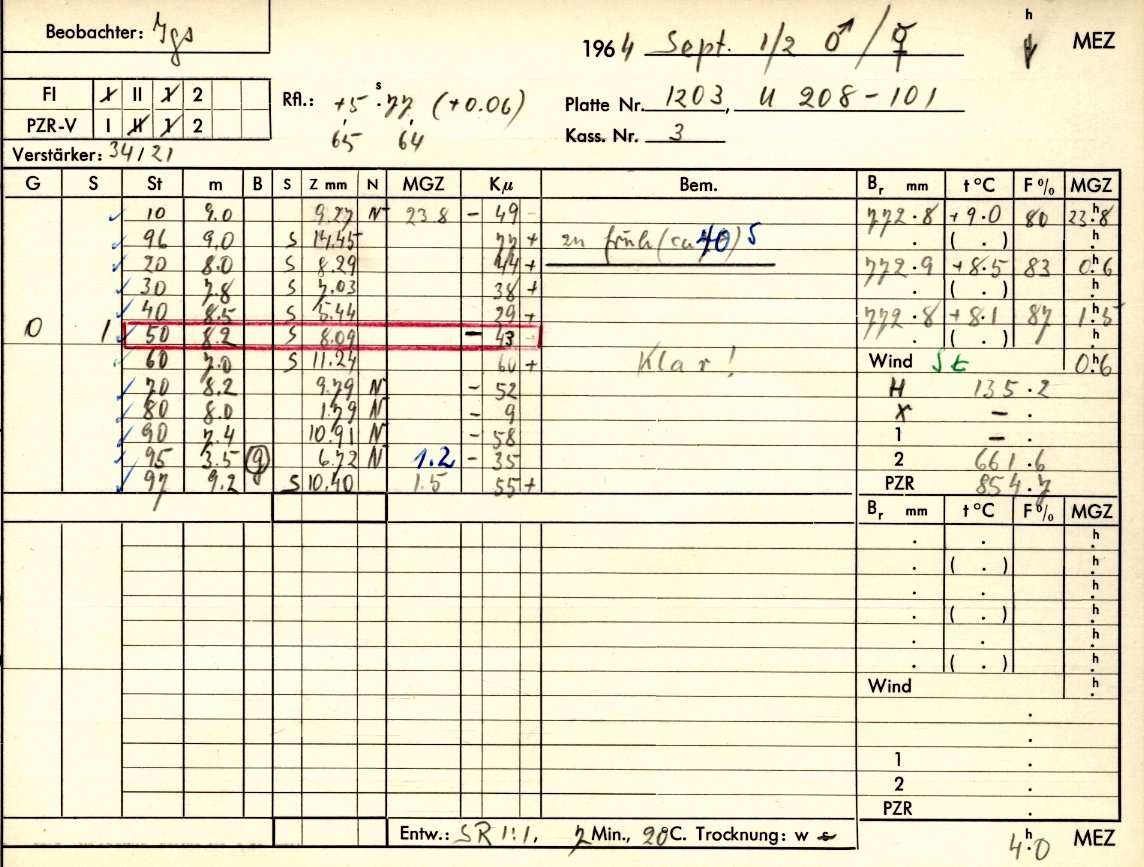 Beobachter: Jgs
1964 Sept. 1/2 ♂ / ☿ h MEZ
FI I II 1 2
PZR-V I II 1 2
Rfl.: +5.77 s (+0.06)
65 64
Platte Nr. 1203, U 208-101
Kass. Nr. 3
Verstärker: 34/21
G S St m B S Z mm N MGZ Kμ Bem. Br mm t°C F% MGZ
10 9.0 9.27 N 23 8 - 49 - 772.8 +9.0 80 23.h8
96 9.0 S 14.45 77 + zu früh (ca 40) S . ( . ) h
20 8.0 S 8.29 44 + 772.9 +8.5 83 0.h6
30 7.8 S 7.03 38 + . ( . ) h
40 8.5 S 5.44 29 + 772.8 +8.1 87 1.h5
0 1 50 8.2 S 8.09 - 43 - . ( . ) h
60 7.0 S 11.24 60 + Klar! Wind St 0.h6
70 8.2 9.79 N - 52 H 135.2
80 8.0 1.79 N - 9 X - .
90 7.4 10.91 N - 58 1 - .
95 3.5 g 6.72 N 1.2 - 35 2 661.6
97 9.2 S 10.40 1.5 55 + PZR 854.7
Br mm t°C F% MGZ
. . h
. ( . ) h
. . h
. ( . ) h
. . h
. ( . ) h
Wind h
.
.
1 .
2 .
PZR .
Entw.: SR 1:1, 7 Min., 20°C. Trocknung: w s
4.h0 MEZ